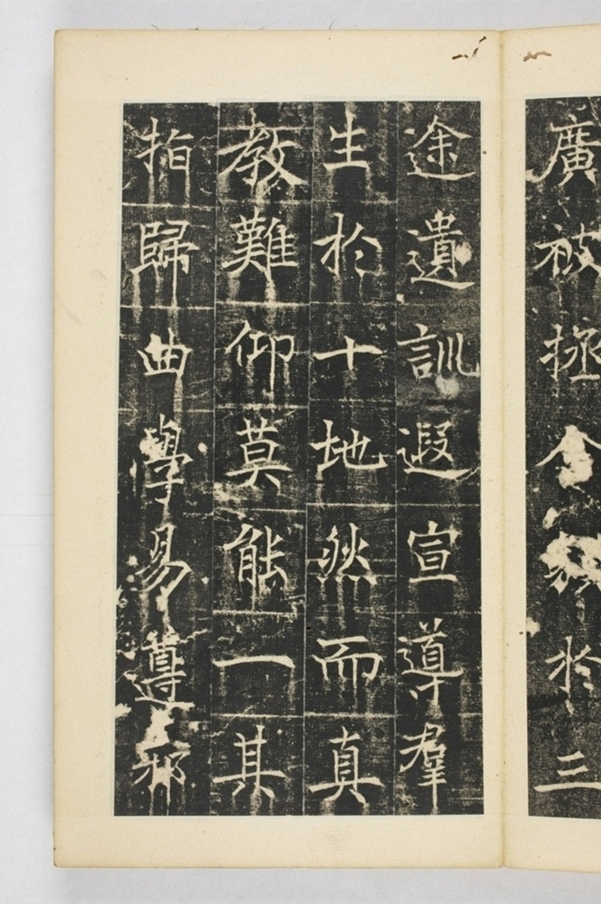 廣被拯含類於三
途遺訓遐宣導羣
生於十地然而真
教難仰莫能一其
指歸曲學易遵邪